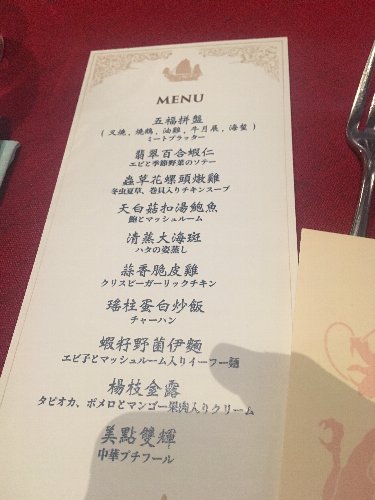 MENU
五福拼盤
(叉燒, 燒鴨, 油雞, 牛月展, 海蜇)
ミートプラッター
翡翠百合蝦仁
エビと季節野菜のソテー
蟲草花螺頭燉雞
冬虫夏草、巻貝入りチキンスープ
天白菇扣湯鮑魚
鮑とマッシュルーム
清蒸大海斑
ハタの姿蒸し
蒜香脆皮雞
クリスピーガーリックチキン
瑤柱蛋白炒飯
チャーハン
蝦籽野菌伊麵
エビ子とマッシュルーム入りイーフー麺
楊枝金露
タピオカ、ポメロとマンゴー果肉入りクリーム
美點雙輝
中華プチフール